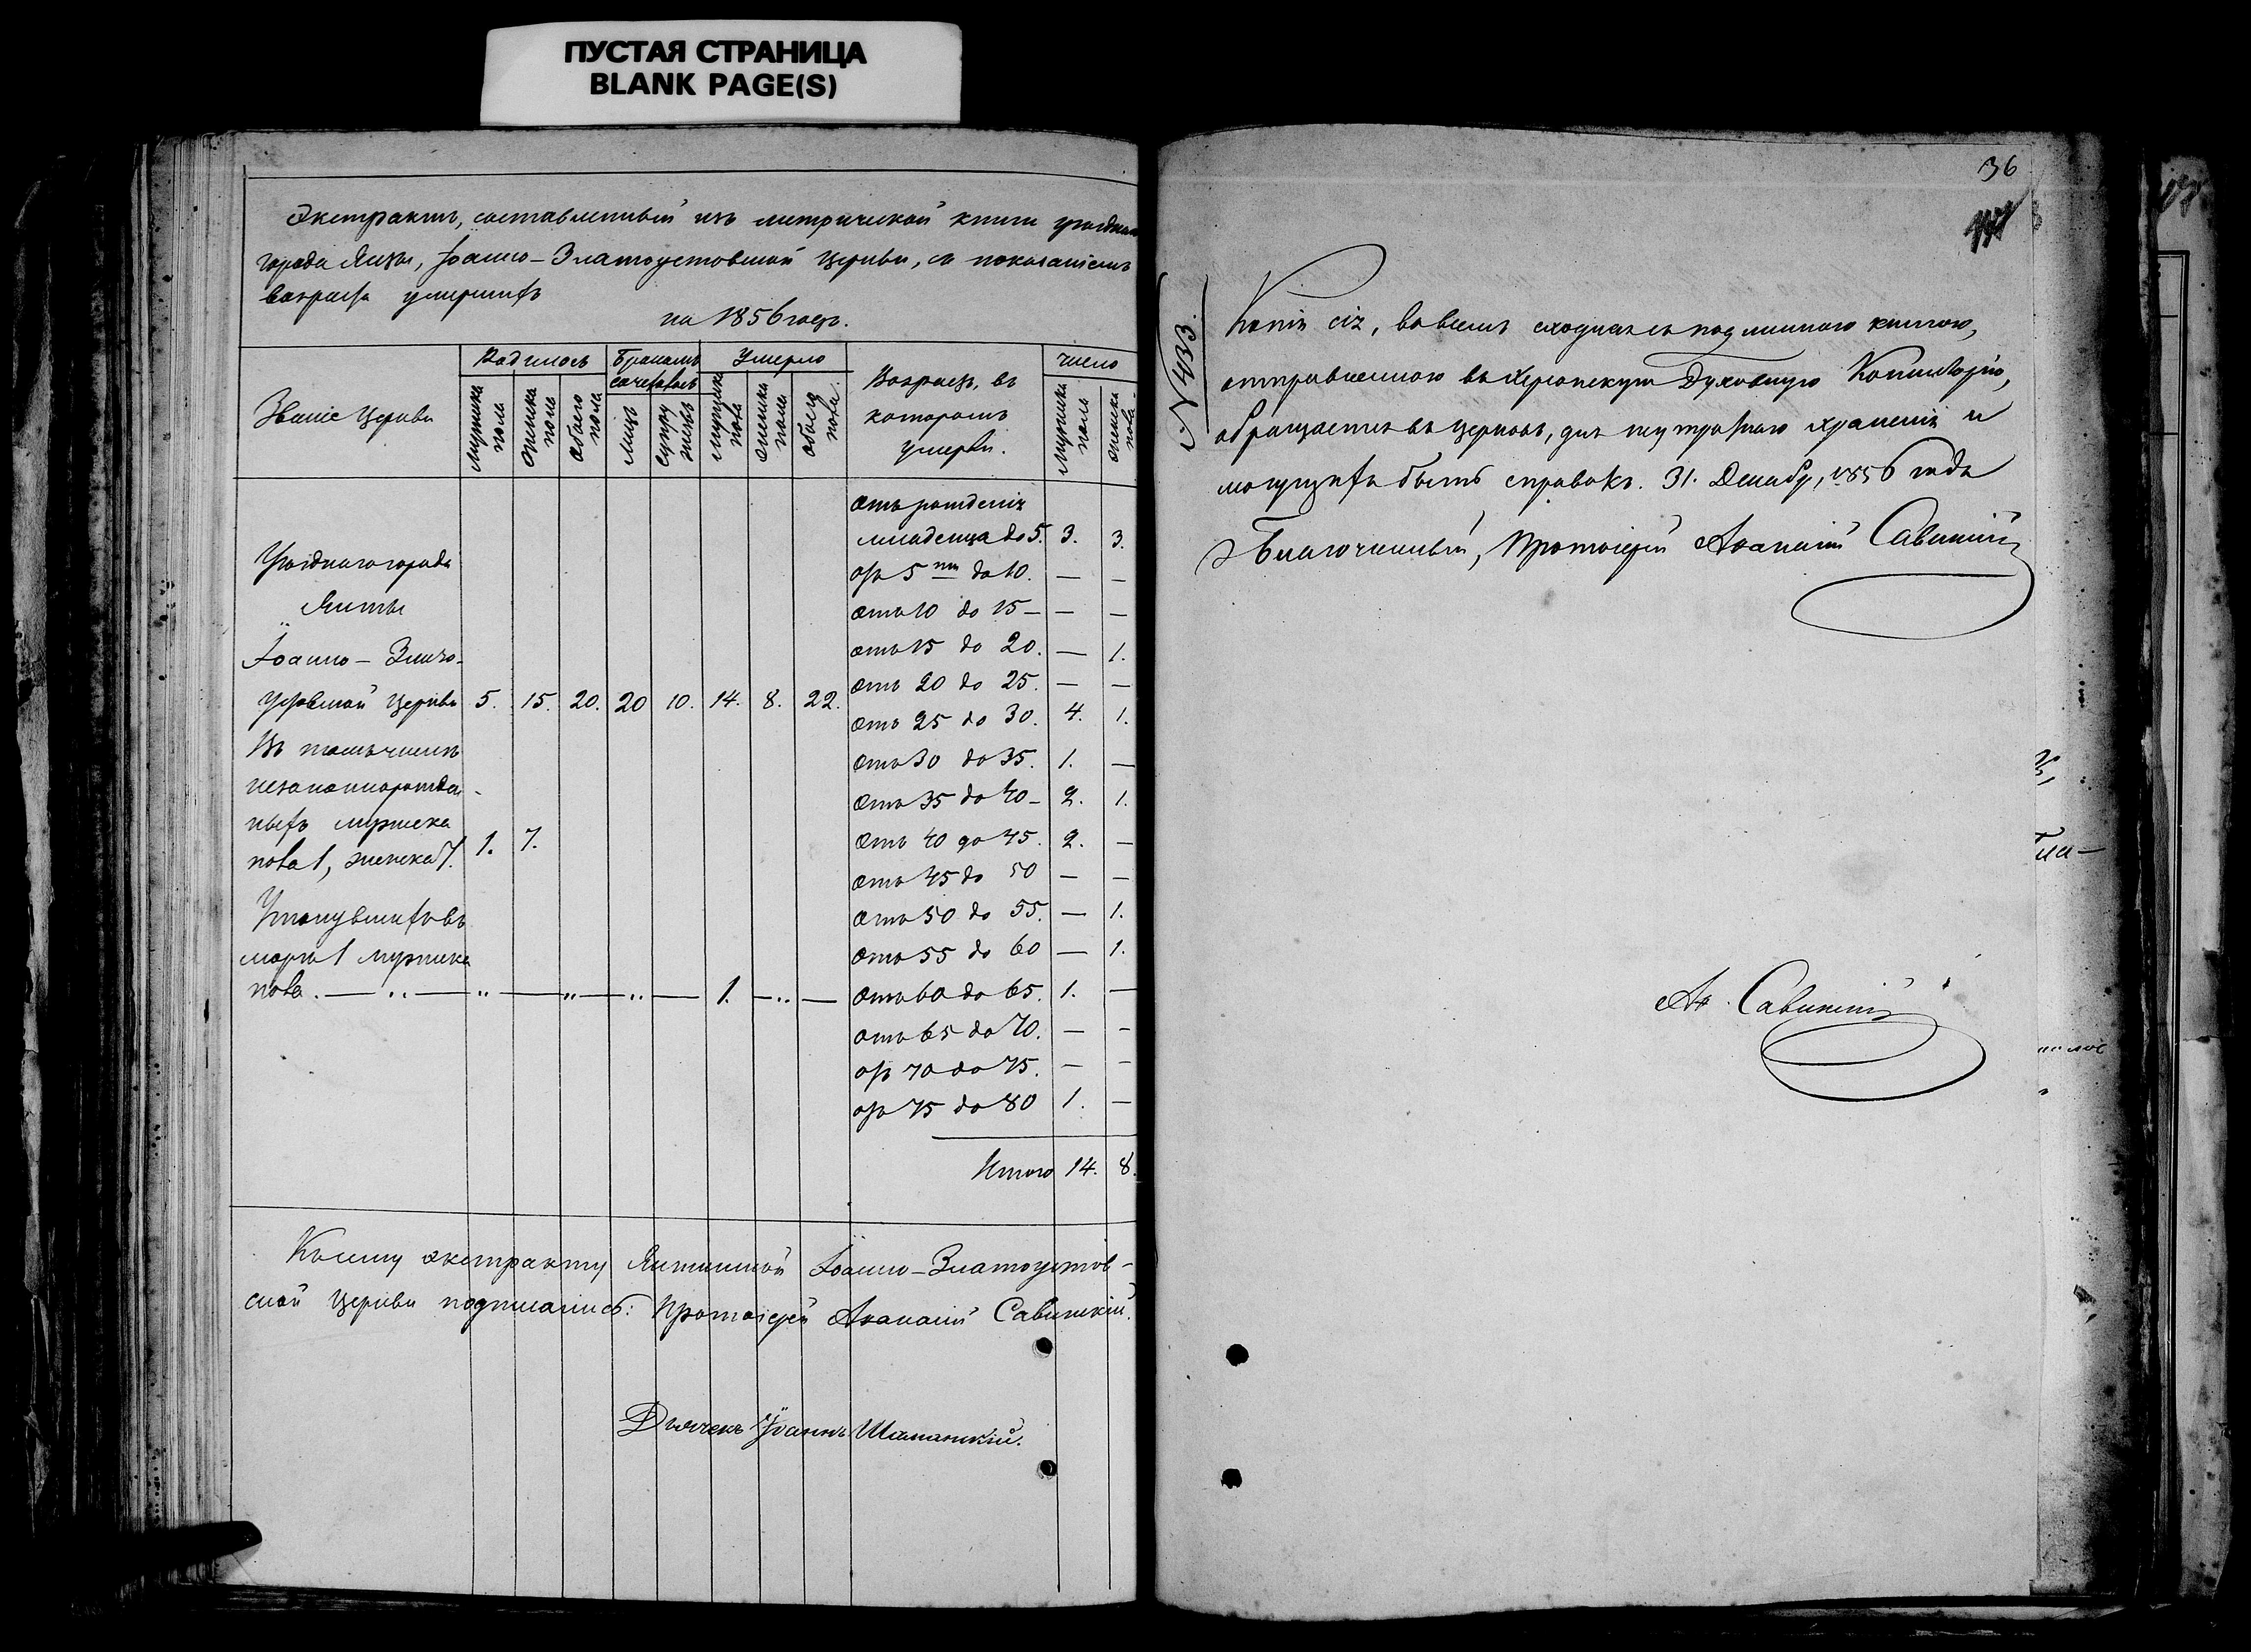 ПУСТАЯ СТРАНИЦА
BLANK PAGE(S)
Экстрактъ, составленный изъ метрической книги уѣзднаго
города Ялты, Іоанно-Златоустовской Церкви, съ показаніемъ
возраста умершихъ
на 1856 годъ.
Званіе Церкви
Родилось
Мужеска пола
Женска пола
Обоего пола
Бракомъ сочеталось
Лицъ
Супружествъ
Умерло
Мужеска пола
Женска пола
Обоего пола.
Возрастъ, въ
которомъ
умерли.
Число
Мужеска пола
Женска пола.
Уѣзднаго города
Ялты
Іоанно-Злато-
устовской Церкви 5. 15. 20. 20 10. 14. 8. 22.
Въ томъ числѣ
незаконнорожден-
ныхъ мужеска
пола 1, женска 7. 1. 7.
Утонувшихъ въ
морѣ 1 мужеска
пола. — „ — „ — „ — „ — 1. — „ —
Отъ рожденія
младенца до 5. 3. 3.
отъ 5ти до 10. — —
Отъ 10 до 15 — — —
отъ 15 до 20. — 1.
Отъ 20 до 25. — —
Отъ 25 до 30. 4. 1.
Отъ 30 до 35. 1. —
Отъ 35 до 40 — 2. 1.
Отъ 40 до 45. 2. —
Отъ 45 до 50 — —
Отъ 50 до 55. — 1.
Отъ 55 до 60 — 1.
Отъ 60 до 65. 1. —
отъ 65 до 70. — —
отъ 70 до 75. — —
отъ 75 до 80 1. —
Итого 14. 8.
Къ сему экстракту Ялтинской Іоанно-Златоустов-
ской Церкви подписались: Протоіерей Аѳанасій Савинскій.
Дьячекъ Іоаннъ
36
№ 433.
Копія сія, во всемъ сходная съ подлинною книгою,
отправленною въ Херсонскую Духовную Консисторію,
обращается въ церковь, для храненія и
могущихъ быть справокъ. 31. Декабря, 1856 года
Благочинный, Протоіерей Аѳанасій Савинскій
Аѳ. Савинскій